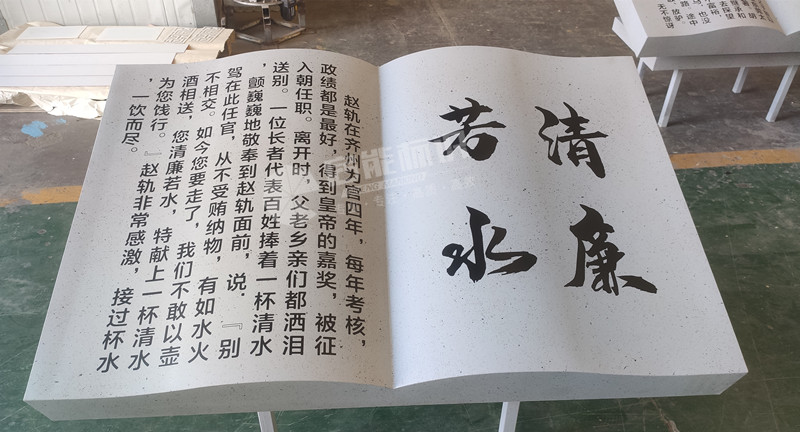 清廉
若水
赵轨在齐州为官四年，每年考核，
政绩都是最好，得到皇帝的嘉奖，被征
入朝任职。离开时，父老乡亲们都洒泪
送别。一位长者代表百姓捧着一杯清水
，颤巍巍地敬奉到赵轨面前，说．『别
驾在此任官，从不受贿纳物，有如水火
不相交。如今您要走了，我们不敢以壶
酒相送，您清廉若水，特献上一杯清水
为您饯行。』赵轨非常感激，接过杯水
，一饮而尽。
继承和
去探望
无不惊讶